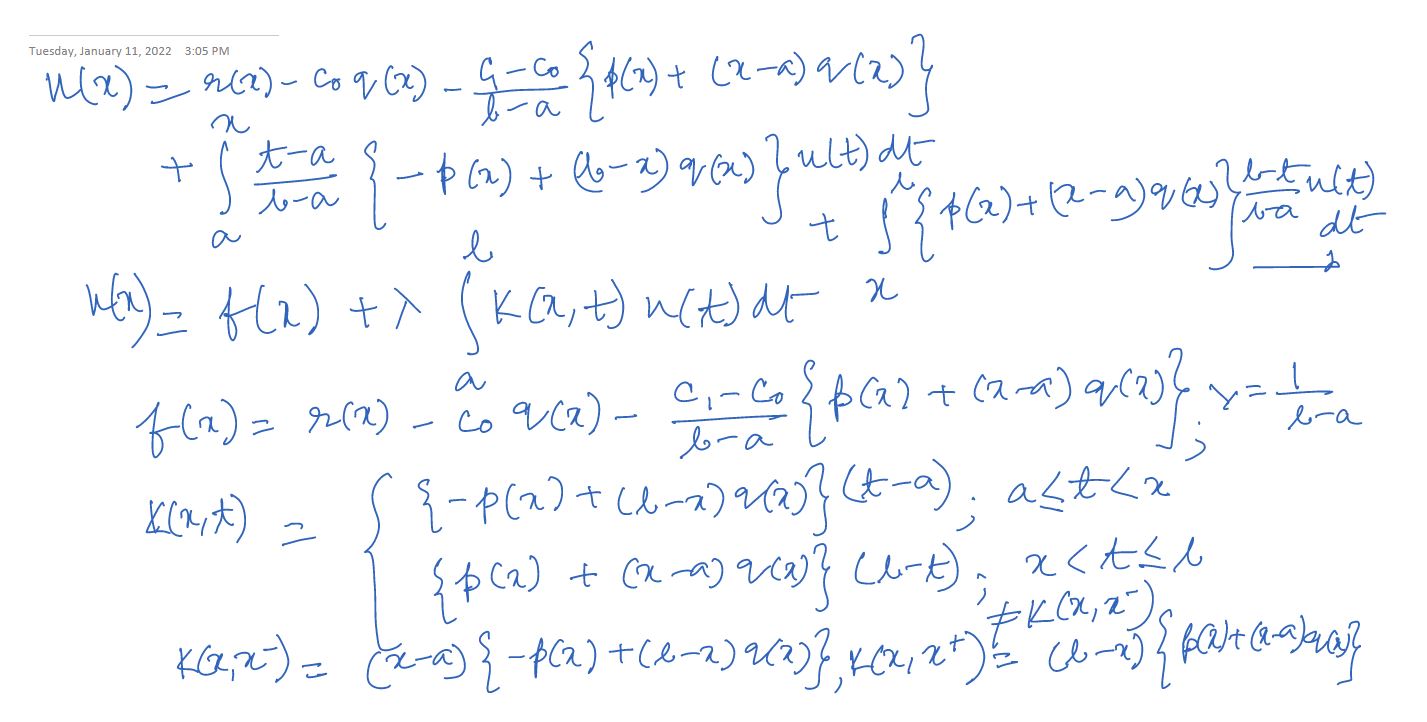 Tuesday, January 11, 2022 3:05 PM
u(x) = r(x) - c₀ q(x) - (c₁ - c₀)/(b-a) {p(x) + (x-a) q(x)}
+ ∫ₐˣ (t-a)/(b-a) {-p(x) + (b-x) q(x)} u(t) dt + ∫ₓᵇ {p(x) + (x-a) q(x)} (b-t)/(b-a) u(t) dt
u(x) = f(x) + λ ∫ₐᵇ K(x,t) u(t) dt
f(x) = r(x) - c₀ q(x) - (c₁ - c₀)/(b-a) {p(x) + (x-a) q(x)}; λ = 1/(b-a)
K(x,t) = { {-p(x) + (b-x) q(x)} (t-a); a ≤ t < x
{p(x) + (x-a) q(x)} (b-t); x < t ≤ b
≠ K(x,x⁻)
K(x,x⁻) = (x-a) {-p(x) + (b-x) q(x)}, K(x,x⁺) = (b-x) {p(x) + (x-a) q(x)}